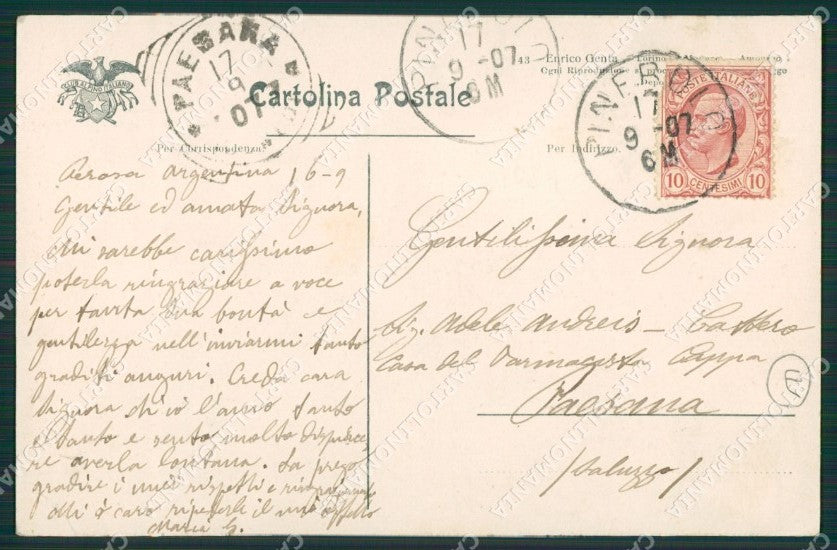 CLUB ALPINO ITALIANO
PAESANA
17
9
07
PINEROLO
17
9 -07
6M
43 Enrico Genta
Cartolina Postale
Per Corrispondenza.
Per Indirizzo.
PINEROLO
17
9 -07
6M
POSTE ITALIANE
10 CENTESIMI 10
Argentina 16-9
Gentile ed amata Signora,
Mi sarebbe carissimo
poterla ringraziare a voce
per tanta sua bontà e
gentilezza nell'inviarmi tanto
graditi auguri. Creda cara
Signora ch'io l'amo tanto
e tanto e sento molto dispiace
re averla lontana. La prego
gradire i miei rispetti e ringraziamenti
è caro ripeterle il mio affetto
Maria G.
Gentilissima Signora
Sig. Adele Andreis - Cattero
Casa del Farmacista Cappa
Paesana
/Saluzzo/
CARTOLINOMANIA